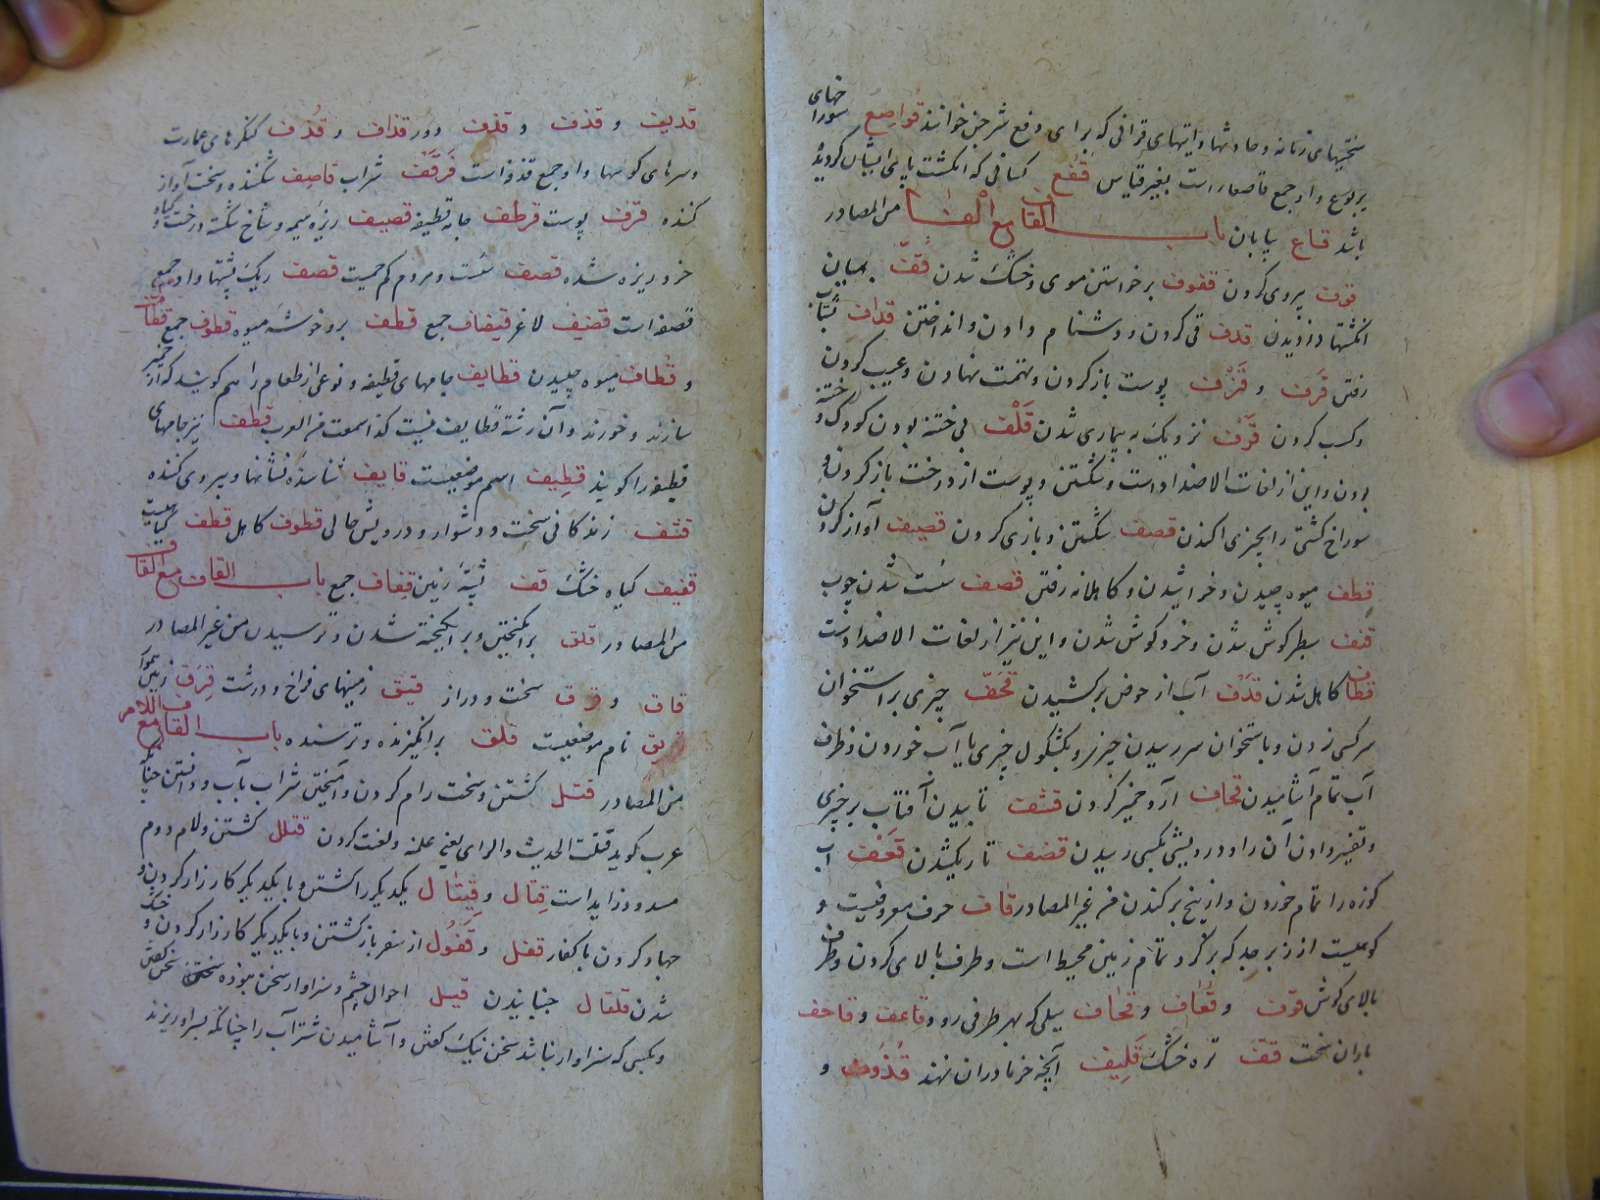 سختیهای زمانه و حادثها و ایتهای قرانی که برای دفع شر جن خوانند قوارع سوراخهای
یربوع و او جمع قاصعاء است بغیر قیاس قفع کسانی که انکشت پای ایشان کردیده
باشد قاع بیابان باب القاف مع الفا من المصادر
قوف پیروی کردن قفوف برخواستن موی و خشک شدن قف بمیان
انکشتها دزدیدن قذف قی کردن و دشنام دادن و انداختن قذاف بشتاب
رفتن قرف و قرف پوست باز کردن و تهمت نهادن و عیب کردن
و کسب کردن قرف نزدیک به بیماری شدن قلف بی ختنه بودن کودک و ختنه
بودن و این از لغات الاضداد است و شکستن و پوست از درخت باز کردن و
سوراخ کشتی را بچیزی اکندن قصف شکستن و بازی کردن قصیف آواز کردن
قطف میوه چیدن و خراشیدن و کاهلانه رفتن قصف سست شدن چوب
قنف سطبر کوش شدن و خرد کوش شدن و این نیز از لغات الاضداد است
قطاف کاهل شدن قدف آب از حوض برکشیدن قحف چیزی بر استخوان
سر کسی زدن و باستخوان سر رسیدن چیزی و بکشکول چیزی یا آب خوردن و ظرف
آب تمام آشامیدن قحاف آرد خمیر کردن قشف تابیدن آفتاب بر چیزی
و تغییر دادن آن را و درویشی بکسی رسیدن قضف تاریک شدن قعف آب
کوزه را تمام خوردن و از بیخ برکندن من غیر المصادر قاف حرف معروفیست و
کوهیست از زبرجد که بر کرد تمام زمین محیط است و طرف بالای کردن و طرف
بالای کوش قوف و قعاف و قحاف سیلی که بهر طرفی رود قاعف و قاحف
باران سخت قف تره خشک قلیف آنچه خرما در ان نهند قذوف و
قدیف و قذف و قذف دور قذاف و قذف کنکرهای عمارت
و سرهای کوهها و او جمع قذفه است قرقف شراب قاصف شکننده و سخت آواز
کننده قرف پوست قرطف جامه قطیفه قصیف ریزه هیمه و شاخ شکسته درخت و کیاه
خرد ریزه شده قصف سست و مردم کم حمیت قصف ریک پشتها و او جمع
قصفه است قضیف لاغر قیضاف جمع قطف بر و خوشه میوه قطوف جمع قطاف
و قطاف میوه چیدن قطایف جامهای قطیفه و نوعی از طعام را هم کویند که از خمیر
سازند و خورند و آن رشته قطایف نیست کذا سمعت من العرب قطف نیز جامهای
قطیفه را کویند قطیف اسم موضعیست قایف شناسنده نشانها و پیروی کننده
قشف زندکانی سخت و دشوار و درویش حالی قطوف کاهل قطف کیاهیست
قفیف کیاه خشک قف پشته زمین قفاف جمع باب القاف مع القاف
من المصادر قلق برانکیختن و برانکیخته شدن و ترسیدن من غیر المصادر
قاق و قوق سخت و دراز قیق زمینهای فراخ و درشت قرق زمین هموار
قریق نام موضعیست قلق برانکیزنده و ترسنده باب القاف مع اللام
من المصادر قتل کشتن و سخت رام کردن و آمیختن شراب بآب و دانستن چنانکه
عرب کوید قتلت الحدیث والرای یعنی علمته و لعنت کردن قتلل کشتن و لام دوم
مسدود زاید است قتال و قیتال یکدیکر را کشتن و با یکدیکر کارزار کردن و
جهاد کردن با کفار قفل و قفول از سفر باز کشتن و با یکدیکر کارزار کردن و خشک
شدن قلقال جنبانیدن قیل احوال چشم و سزاوار سخن نبوده سخن کفتن
و بکسی که سزاوار نباشد سخن نیک کفتن و آشامیدن شتر آب را چنانکه بسراو ریزند